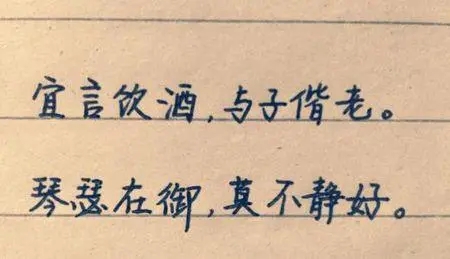 宜言饮酒,与子偕老。
琴瑟在御,莫不静好。